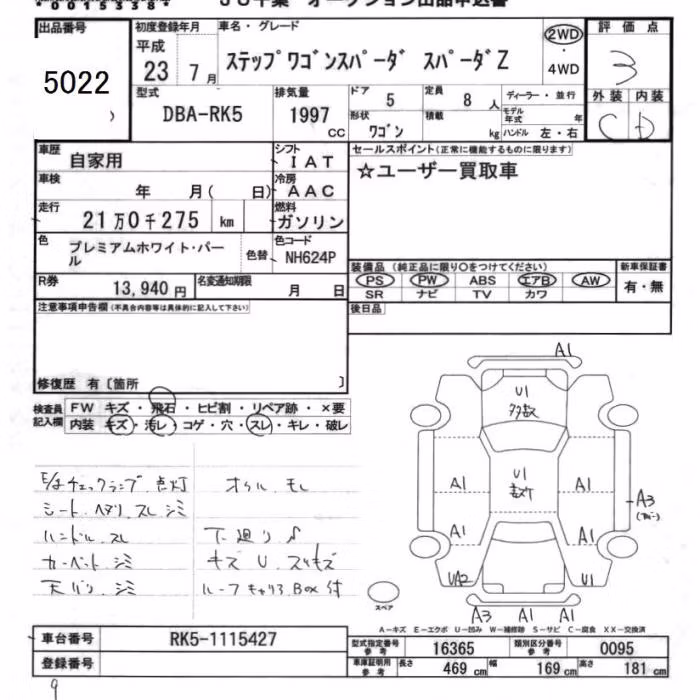 00153384
JU千葉 オークション出品申込書
出品番号 初度登録年月 車名・グレード 評価点
平成 23 7月 ステップワゴンスパーダ スパーダZ 2WD・4WD 3
5022
型式 排気量 ドア 定員 ディーラー・並行 外装 内装
DBA-RK5 1997 CC 5 8人 モデル年式 年 C D
形状 積載 ワゴン kg ハンドル 左・右
車歴 自家用 シフト IAT セールスポイント(正常に機能するものに限ります)
車検 年 月( 日) 冷房 AAC ☆ユーザー買取車
走行 21万0千275 km 燃料 ガソリン
色 プレミアムホワイト・パール 色替 色コード NH624P
装備品(純正品に限り○をつけてください) 新車保証書
R券 13,940円 名変通知期限 月 日 PS PW ABS エアB AW 有・無
SR ナビ TV カワ
注意事項申告欄(不具合内容等は具体的に記入して下さい) 後日品
修復歴 有〔箇所 〕
検査員記入欄 FW キズ・飛石・ヒビ割・リペア跡・×要
内装 キズ・汚レ・コゲ・穴・スレ・キレ・破レ
A1
U1
多数
A1 U1 A1
A1 A1 A3
UA2 U1
スペア A3 A1 A1
E/gチェックランプ点灯 オイル モレ
シート ヘタリ スレ シミ
ハンドル スレ 下廻り
カーペット シミ キズ U スリキズ
天バリ シミ ルーフキャリア Box 付
A−キズ E−エクボ U−凹み W−補修跡 S−サビ C−腐食 XX−交換済
車台番号 RK5-1115427 型式指定番号 参考 16365 類別区分番号 参考 0095
登録番号 車庫証明用 参考 長さ 469 cm 幅 169 cm 高さ 181 cm
9